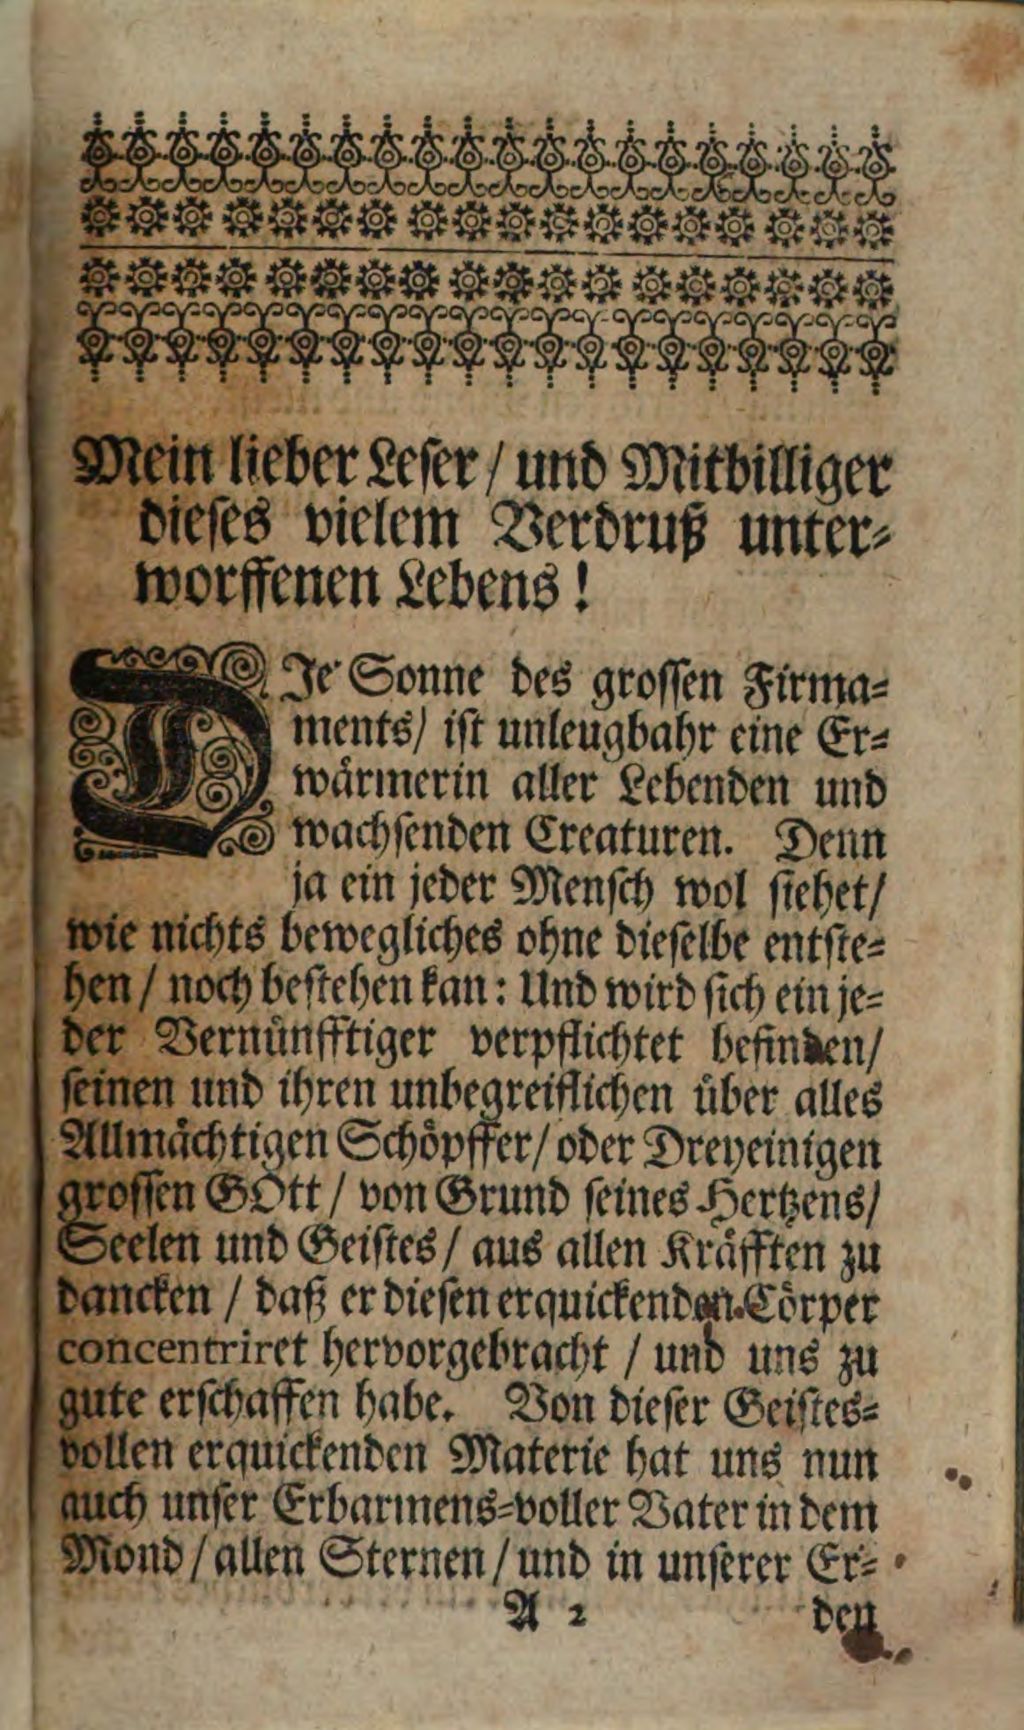 Mein lieber Leser / und Mitbilliger
dieses vielem Verdruß unter-
worffenen Lebens!
DIe Sonne des grossen Firma-
ments/ ist unleugbahr eine Er-
wärmerin aller Lebenden und
wachsenden Creaturen. Denn
ja ein jeder Mensch wol siehet/
wie nichts bewegliches ohne dieselbe entste-
hen / noch bestehen kan: Und wird sich ein je-
der Vernünfftiger verpflichtet befinden/
seinen und ihren unbegreiflichen über alles
Allmächtigen Schöpffer/ oder Dreyeinigen
grossen GOtt / von Grund seines Hertzens/
Seelen und Geistes / aus allen Kräfften zu
dancken / daß er diesen erquickenden Cörper
concentriret hervorgebracht / und uns zu
gute erschaffen habe. Von dieser Geistes-
vollen erquickenden Materie hat uns nun
auch unser Erbarmens-voller Vater in dem
Mond / allen Sternen / und in unserer Er-
A 2 den